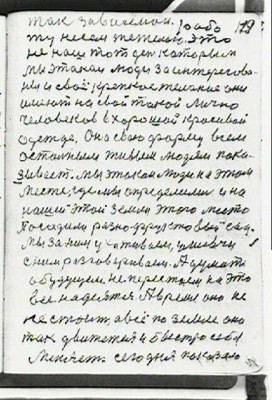 так зависении. рабо 179
ту несем тяжкую. Это
не наш тот дет которым
мы этакая люди заинтересова-
ны и своё крепкое желание они
имеют на свой такой лично
человеков в хорошой красивой
одежде. Она свою форму всем
остальным живым людям пока-
зывает. Мы этакая люди на этом
месте, где мы определили и на
нашей этой земли этого место
Посадили разно фруктовый сад.
Мы за ним ухаживаем, и
с ним разговариваем. А думать
о будущем не перестаем на это
все надеятся. А время оно не
не стоит, а всё по земле оно
так движется и быстро себя
Меняет. Сегодня показало